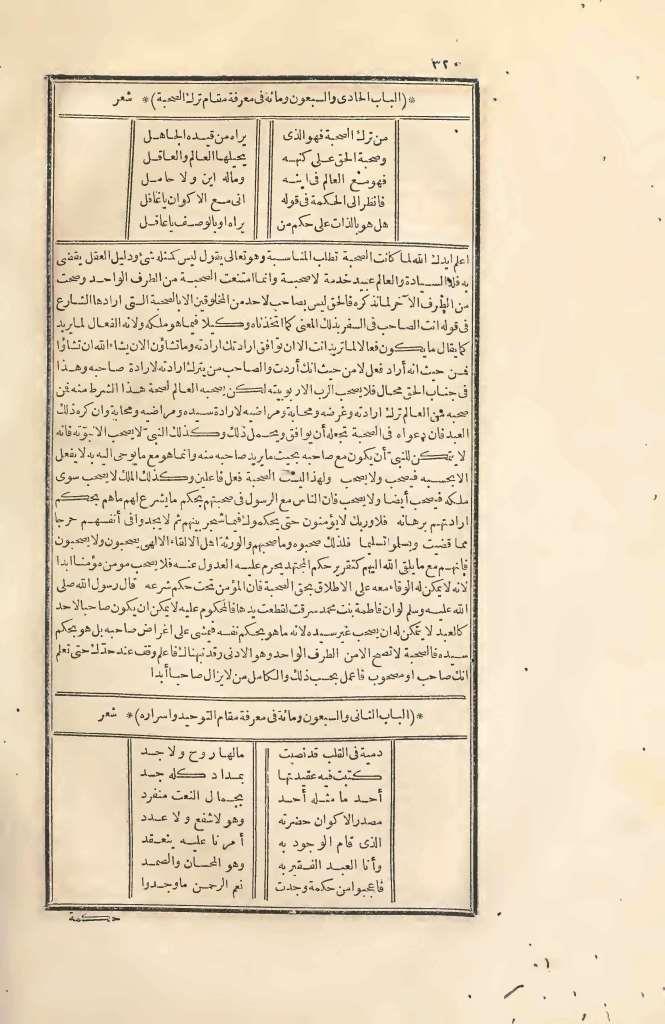 ٣٢٠
*(الباب الحادى والسبعون ومائة فى معرفة مقام ترك الصحبة)* شعر
من ترك الصحبة فهو الذى يراه من قيده الجاهل
وصحبة الحق على كنهه يحيلها العالم والعاقل
فهو مع العالم فى اينه وماله اين ولا حامل
فانظر الى الحكمة فى قوله انى مع الاكوان ياغافل
هل هو بالذات على حكم من يراه او بالوصف ياعاقل
اعلم ايدك الله لما كانت الصحبة تطلب المناسبة وهو تعالى يقول ليس كمثله شئ ودليل العقل يقضى
به فلله السيادة والعالم عبيد خدمة لا صحبة وانما امتنعت الصحبة من الطرف الواحد وصحت
من الطرف الآخر لما نذكره فالحق ليس بصاحب لاحد من المخلوقين الا بالصحبة التى ارادها الشارع
فى قوله انت الصاحب فى السفر بذلك المعنى كما اتخذناه وكيلا فيما هو ملكه ولانه الفعال لما يريد
كما يقال ما يكون فعالا لما تريد انت الا ان توافق ارادتك ارادته وما تشاؤن الا ان يشاء الله ان تشاؤا
فمن حيث انه أراد فعل لا من حيث انك أردت والصاحب من يترك ارادته لارادة صاحبه وهذا
فى جناب الحق محال فلا يصحب الرب الا ربوبيته لكن يصحبه العالم لصحة هذا الشرط منه فمن
صحبه من العالم ترك ارادته وغرضه ومحابه ومراضيه لارادة سيده ومراضيه ومحابه وان كره ذلك
العبد فان دعواه فى الصحبة تجعله أن يوافق ويحمل ذلك وكذلك النبى لا يصحب الا نبوته فانه
لا يتمكن للنبى أن يكون مع صاحبه بحيث ما يريد صاحبه منه وانما هو مع ما يوحى اليه به لا يفعل
الا بحسبه فيصحب ولا يصحب ولهذا ليست الصحبة فعل فاعلين وكذلك الملك لا يصحب سوى
ملكه فيصحب أيضا ولا يصحب فان الناس مع الرسول فى صحبتهم بحكم ما يشرع لهم ما هم بحكم
ارادتهم برهانه فلا وربك لا يؤمنون حتى يحكموك فيما شجر بينهم ثم لا يجدوا فى أنفسهم حرجا
مما قضيت ويسلموا تسليما فلذلك صحبوه وما صحبهم والورثة اهل الالقاء الالهى يصحبون ولا يصحبون
فانهم مع ما يلقى الله اليهم كتقرير حكم المجتهد يحرم عليه العدول عنه فلا يصحب مومن مؤمنا ابدا
لانه لا يمكن له الوفاء معه على الاطلاق بحق الصحبة فان المؤمن تحت حكم شرعه قال رسول الله صلى
الله عليه وسلم لو ان فاطمة بنت محمد سرقت لقطعت يدها فالمحكوم عليه لا يمكن ان يكون صاحبا لاحد
كالعبد لا يتمكن له ان يصحب غير سيده لانه ما هو بحكم نفسه فيمشى على اغراض صاحبه بل هو بحكم
سيده فالصحبة لا تصح الا من الطرف الواحد وهو الادنى وقد نبهناك فاعلم وقف عند حدك حتى تعلم
انك صاحب او مصحوب فاعمل بحسب ذلك والكامل من لا يزال صاحبا أبدا
*(الباب الثانى والسبعون ومائة فى معرفة مقام التوحيد واسراره)* شعر
دمية فى القلب قد نصبت مالها روح ولا جد
كتبت فيه عقيدتها بمداد كله جد
أحد ما مثله أحد بجمال النعت منفرد
مصدر الاكوان حضرته وهو لا شفع ولا عدد
الذى قام الوجود به أمرنا عليه ينعقد
وأنا العبد الفقير به وهو المحسان والصمد
فاعجبوا من حكمة وجدت نعم الرحمن ما وجدوا
حكمة